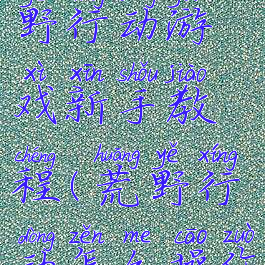 野行动游
xì xīn shǒu jiào
戏新手教
chéng huāng yě xíng
程(荒野行
dòng zěn me cao zuò
动怎么操作